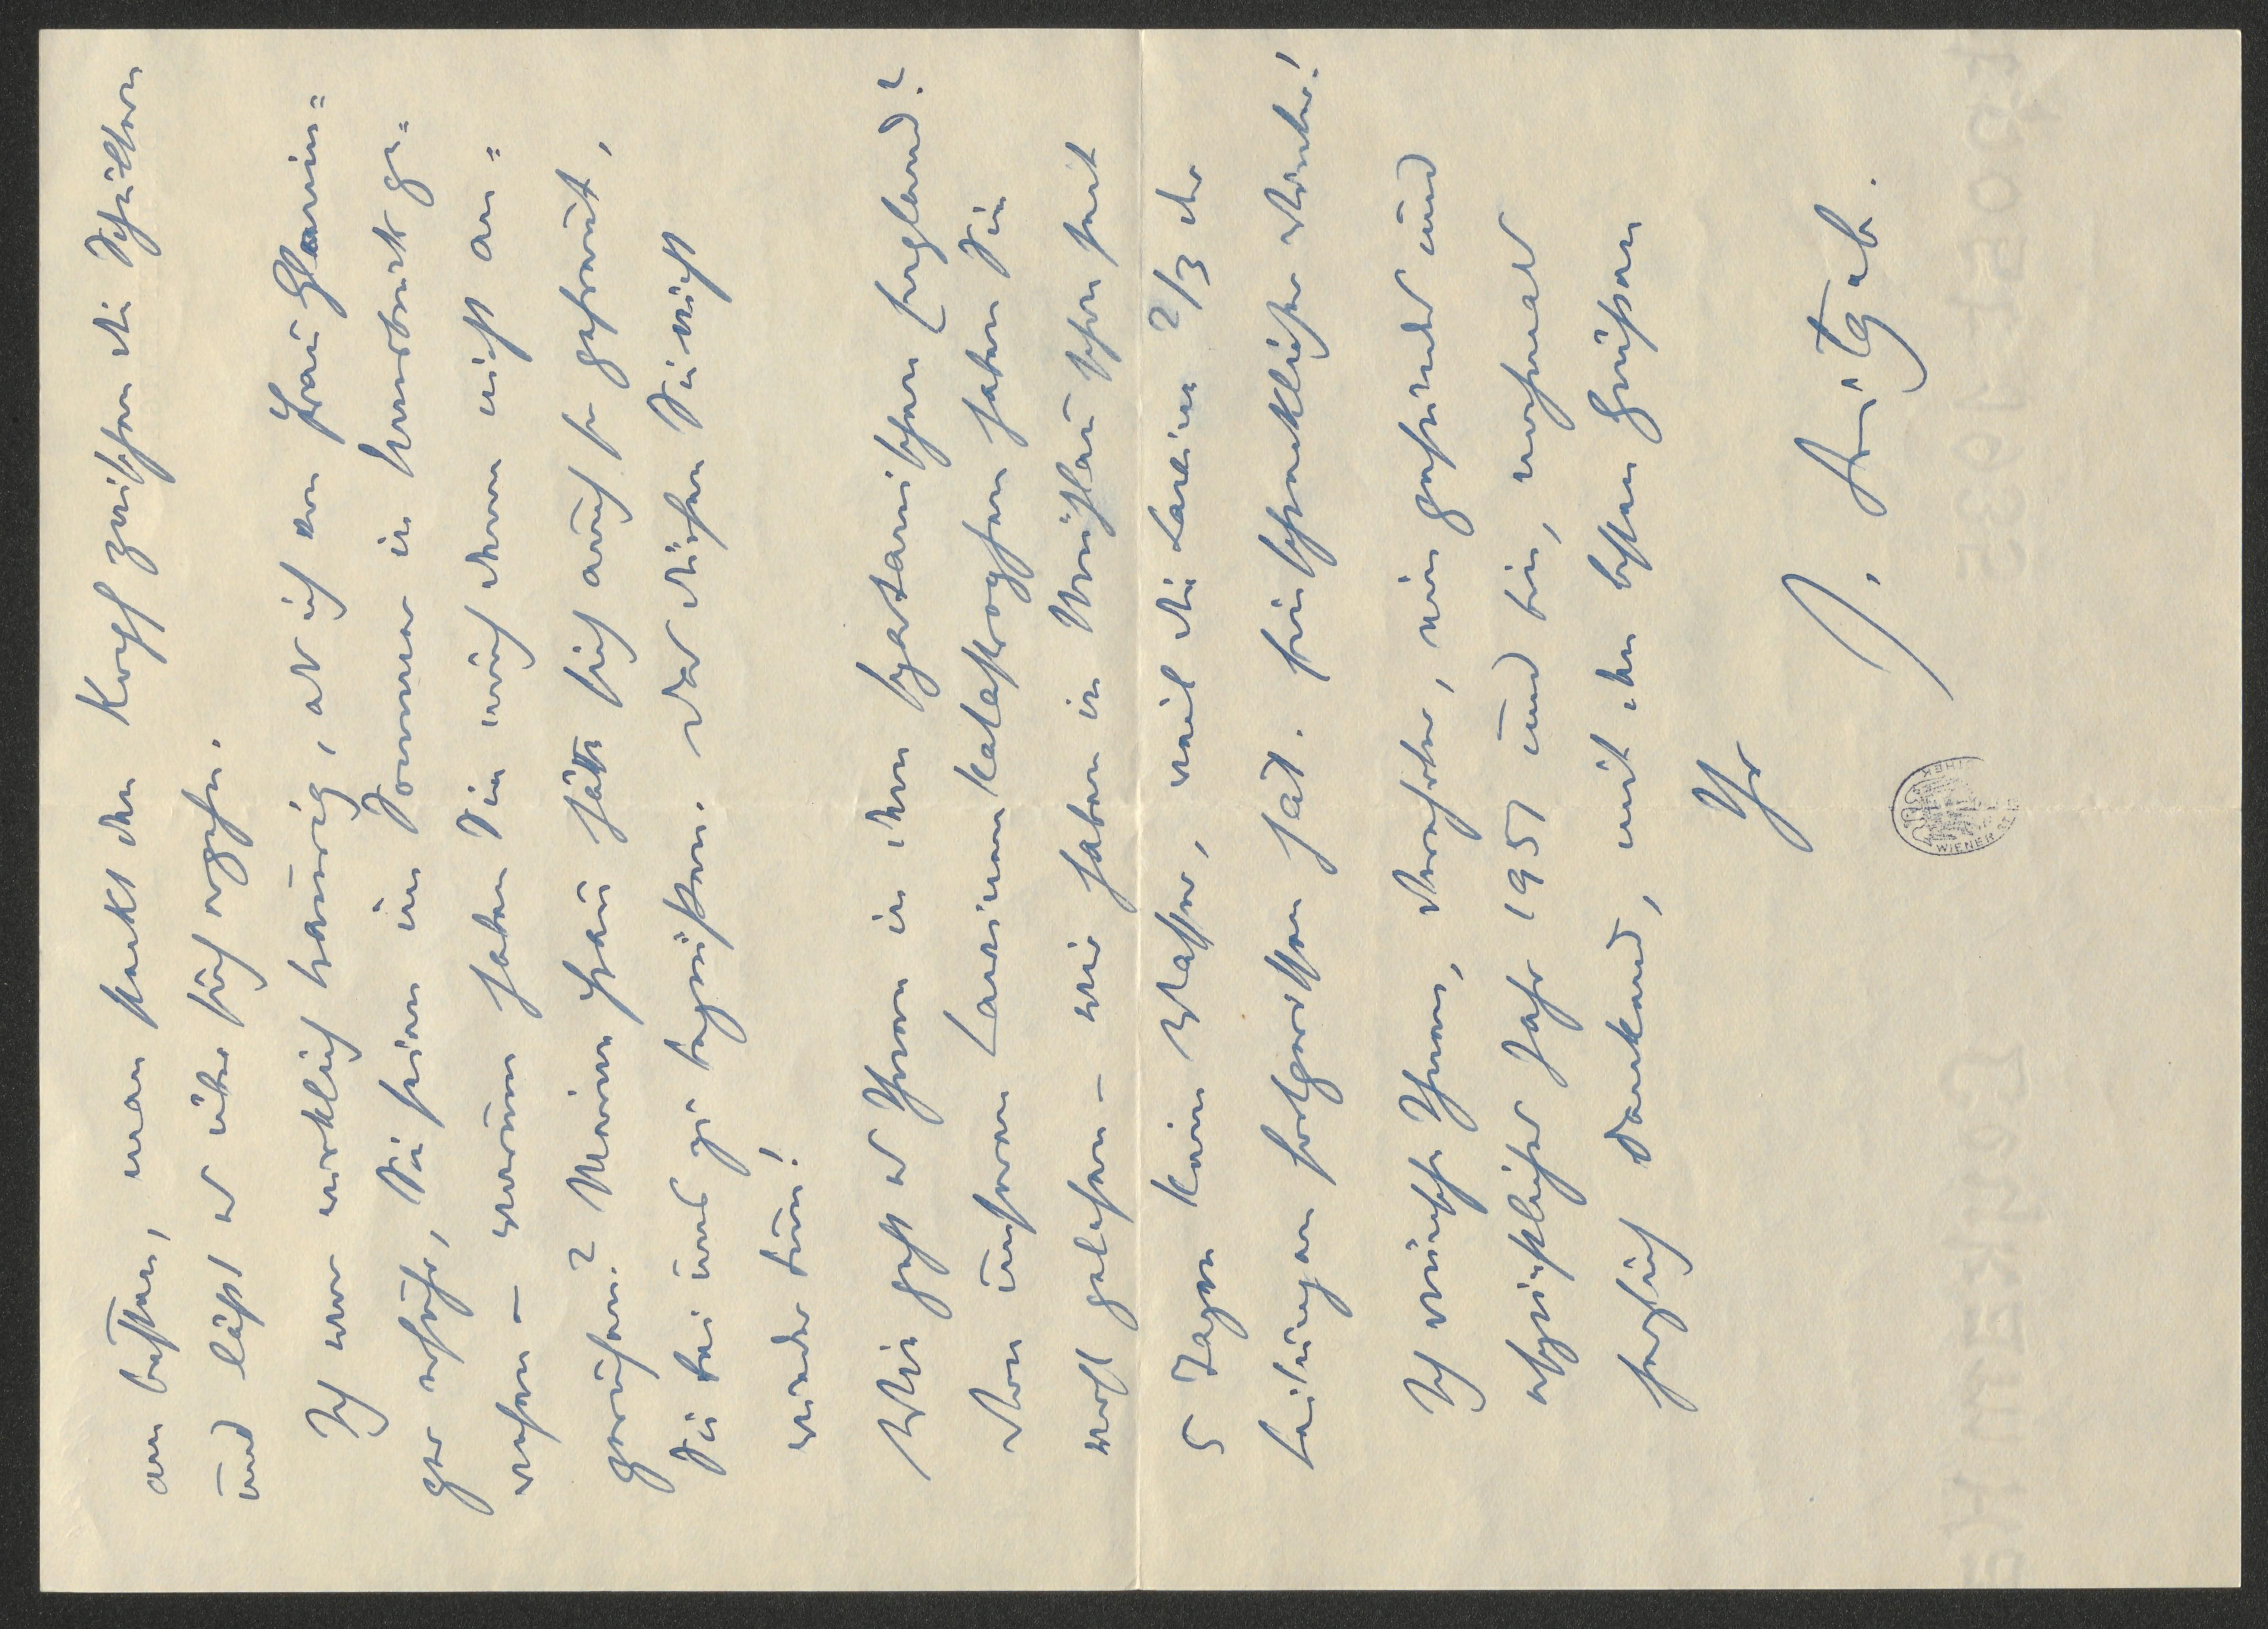 am besten, man steckt den Kopf zwischen die Schultern
und läßt es über sich ergehn.
Ich war wirklich traurig, als ich von Frau Glannin=
ger erfuhr, Sie seien im Sommer in Innsbruck ge=
wesen – warum haben Sie mich denn nicht an=
gerufen? Meine Frau hätte sich auch so gefreut,
Sie bei uns zu begrüßen. Das dürfen Sie nicht
wieder tun!
Wie geht es Ihnen in dem spartanischen England?
Von unseren Lawinenkatastrophen haben Sie
wohl gelesen – wir haben in Mühlau schon seit
5 Tagen kein Wasser, weil die Lawine 2/3 der
Leitungen fortgerissen hat. Ein schrecklicher Winter!
Ich wünsche Ihnen, Verehrter, ein gesundes und
ersprießliches Jahr 1951 und bin, nochmals
herzlich dankend, mit den besten Grüßen
Ihr
WIENER